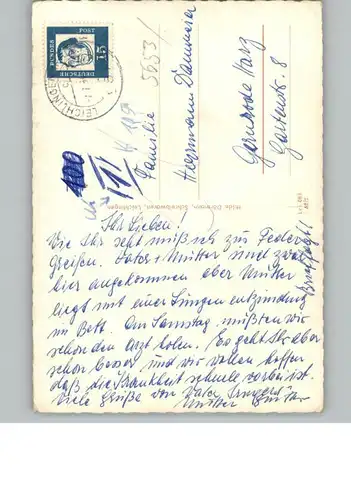 DEUTSCHE
BUNDES
POST
15
LEICHLINGEN
5653/
100
Familie
Herrmann
Gernrode Harz
Gartenstr. 8
Hilde Schreibwaren, Leichlingen
Ihr Lieben!
Wie Ihr seht muß ich zur Feder
greifen. Vater + Mutter sind zwar
hier angekommen aber Mutter
liegt mit einer Lungenentzündung
im Bett. Am Samstag mußten wir
schon den Arzt holen. Es geht Ihr aber
schon besser und wir wollen hoffen
daß die Krankheit schnell vorbei ist.
Viele Grüße von Vater
Mutter